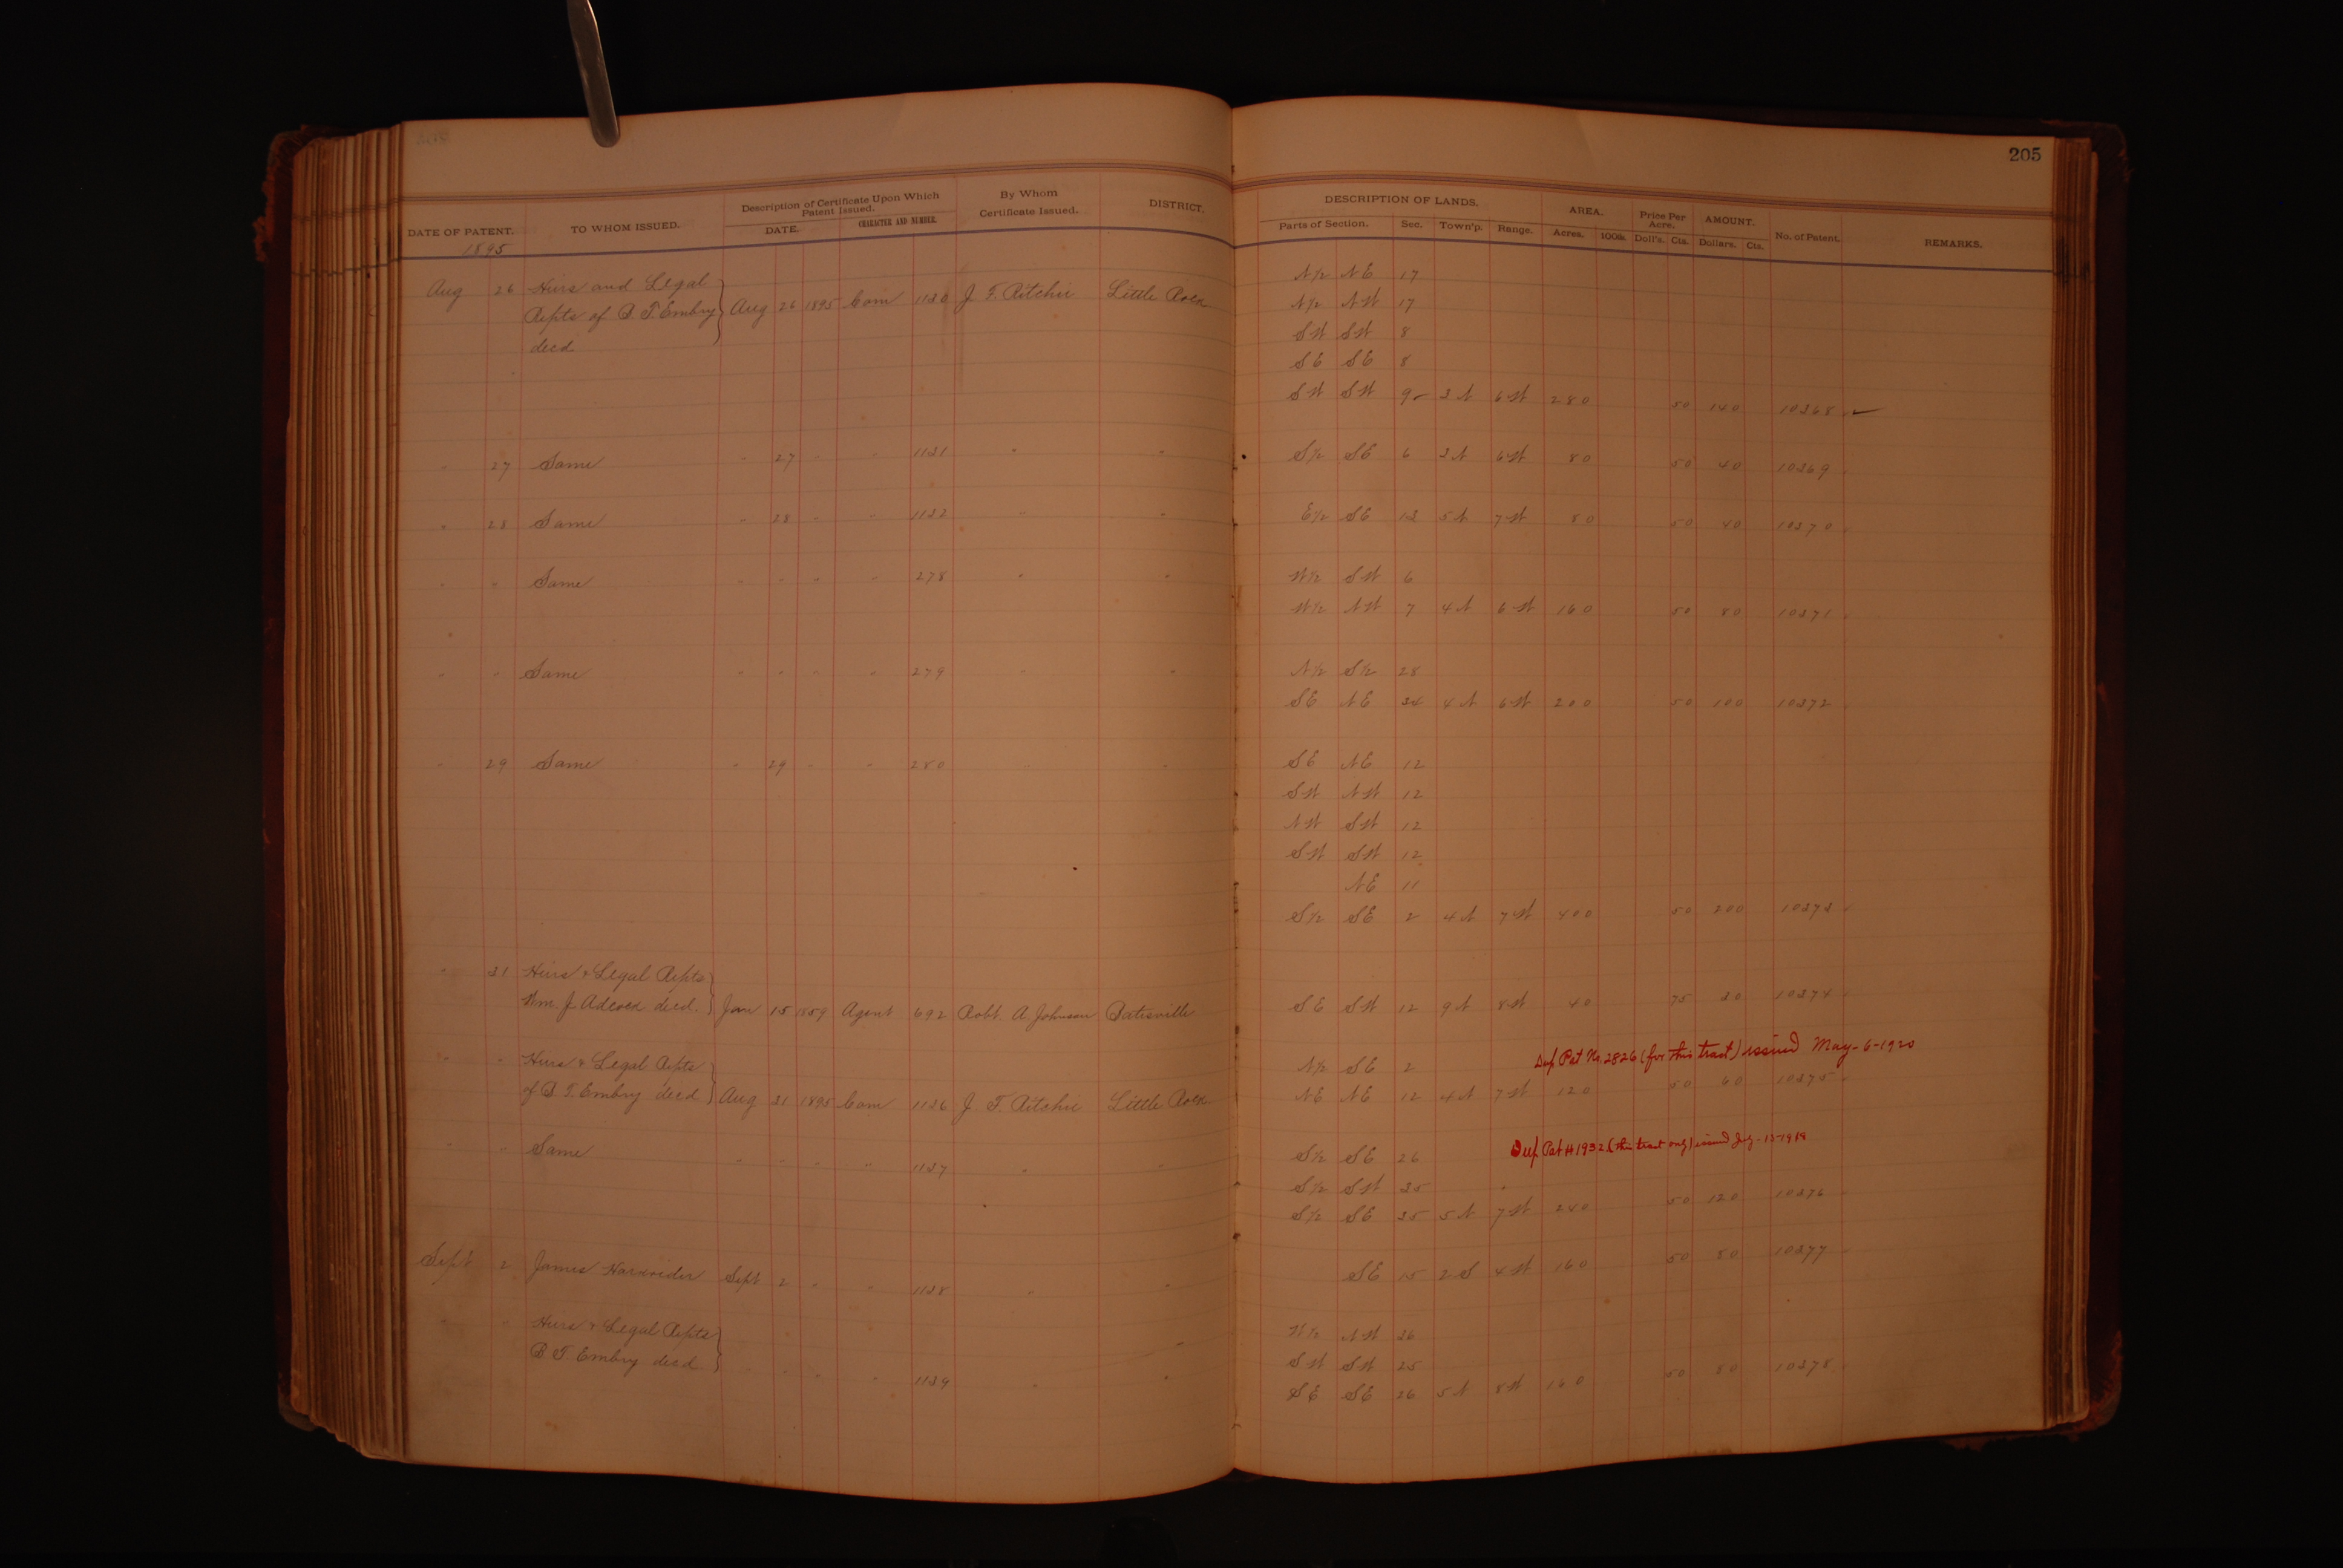 205
DATE OF PATENT. TO WHOM ISSUED. Description of Certificate Upon Which Patent Issued. DATE. CHARACTER AND NUMBER. By Whom Certificate Issued. DISTRICT. DESCRIPTION OF LANDS. Parts of Section. Sec. Town'p. Range. AREA. Acres. 100s. Price Per Acre. Doll's. Cts. AMOUNT. Dollars. Cts. No. of Patent. REMARKS.
1895
N½ NE 17
Aug 26 Heirs and Legal
Repts of B. T. Embry Aug 26 1895 Com 1130 J. F. Ritchie Little Rock N½ NW 17
decd SW SW 8
SE SE 8
SW SW 9 3 N 6 W 280 50 140 10368
" 27 Same " 27 " " 1131 " " S½ SE 6 3 N 6 W 80 50 40 10369
" 28 Same " 28 " " 1132 " " E½ SE 13 5 N 7 W 80 50 40 10370
" " Same " " " " 278 " " W½ SW 6
W½ NW 7 4 N 6 W 160 50 80 10371
" " Same " " " " 279 " " N½ S½ 28
SE NE 34 4 N 6 W 200 50 100 10372
" 29 Same " 29 " " 280 " " SE NE 12
SW NW 12
NW SW 12
SW SW 12
NE 11
S½ SE 2 4 N 7 W 400 50 200 10373
" 31 Heirs & Legal Repts
Wm. J. Adcock decd. Jan 15 1859 Agent 692 Robt. A. Johnson Batesville SE SW 12 9 N 8 W 40 75 30 10374
Dup Pat No. 2826 (for this tract) issued May-6-1920
" " Heirs & Legal Repts N½ SE 2
of B. T. Embry decd Aug 31 1895 Com 1136 J. F. Ritchie Little Rock NE NE 12 4 N 7 W 120 50 60 10375
Dup Pat # 1932 (this tract only) issued July-15-1918
" " Same " " " " 1137 " " S½ SE 26
S½ SW 35
S½ SE 35 5 N 7 W 240 50 120 10376
Sept 2 James Sept 2 " " 1138 " " SE 15 2 S 4 W 160 50 80 10377
" " Heirs & Legal Repts W½ NW 36
B T. Embry decd. SW SW 25
" " " " 1139 " " SE SE 26 5 N 8 W 160 50 80 10378